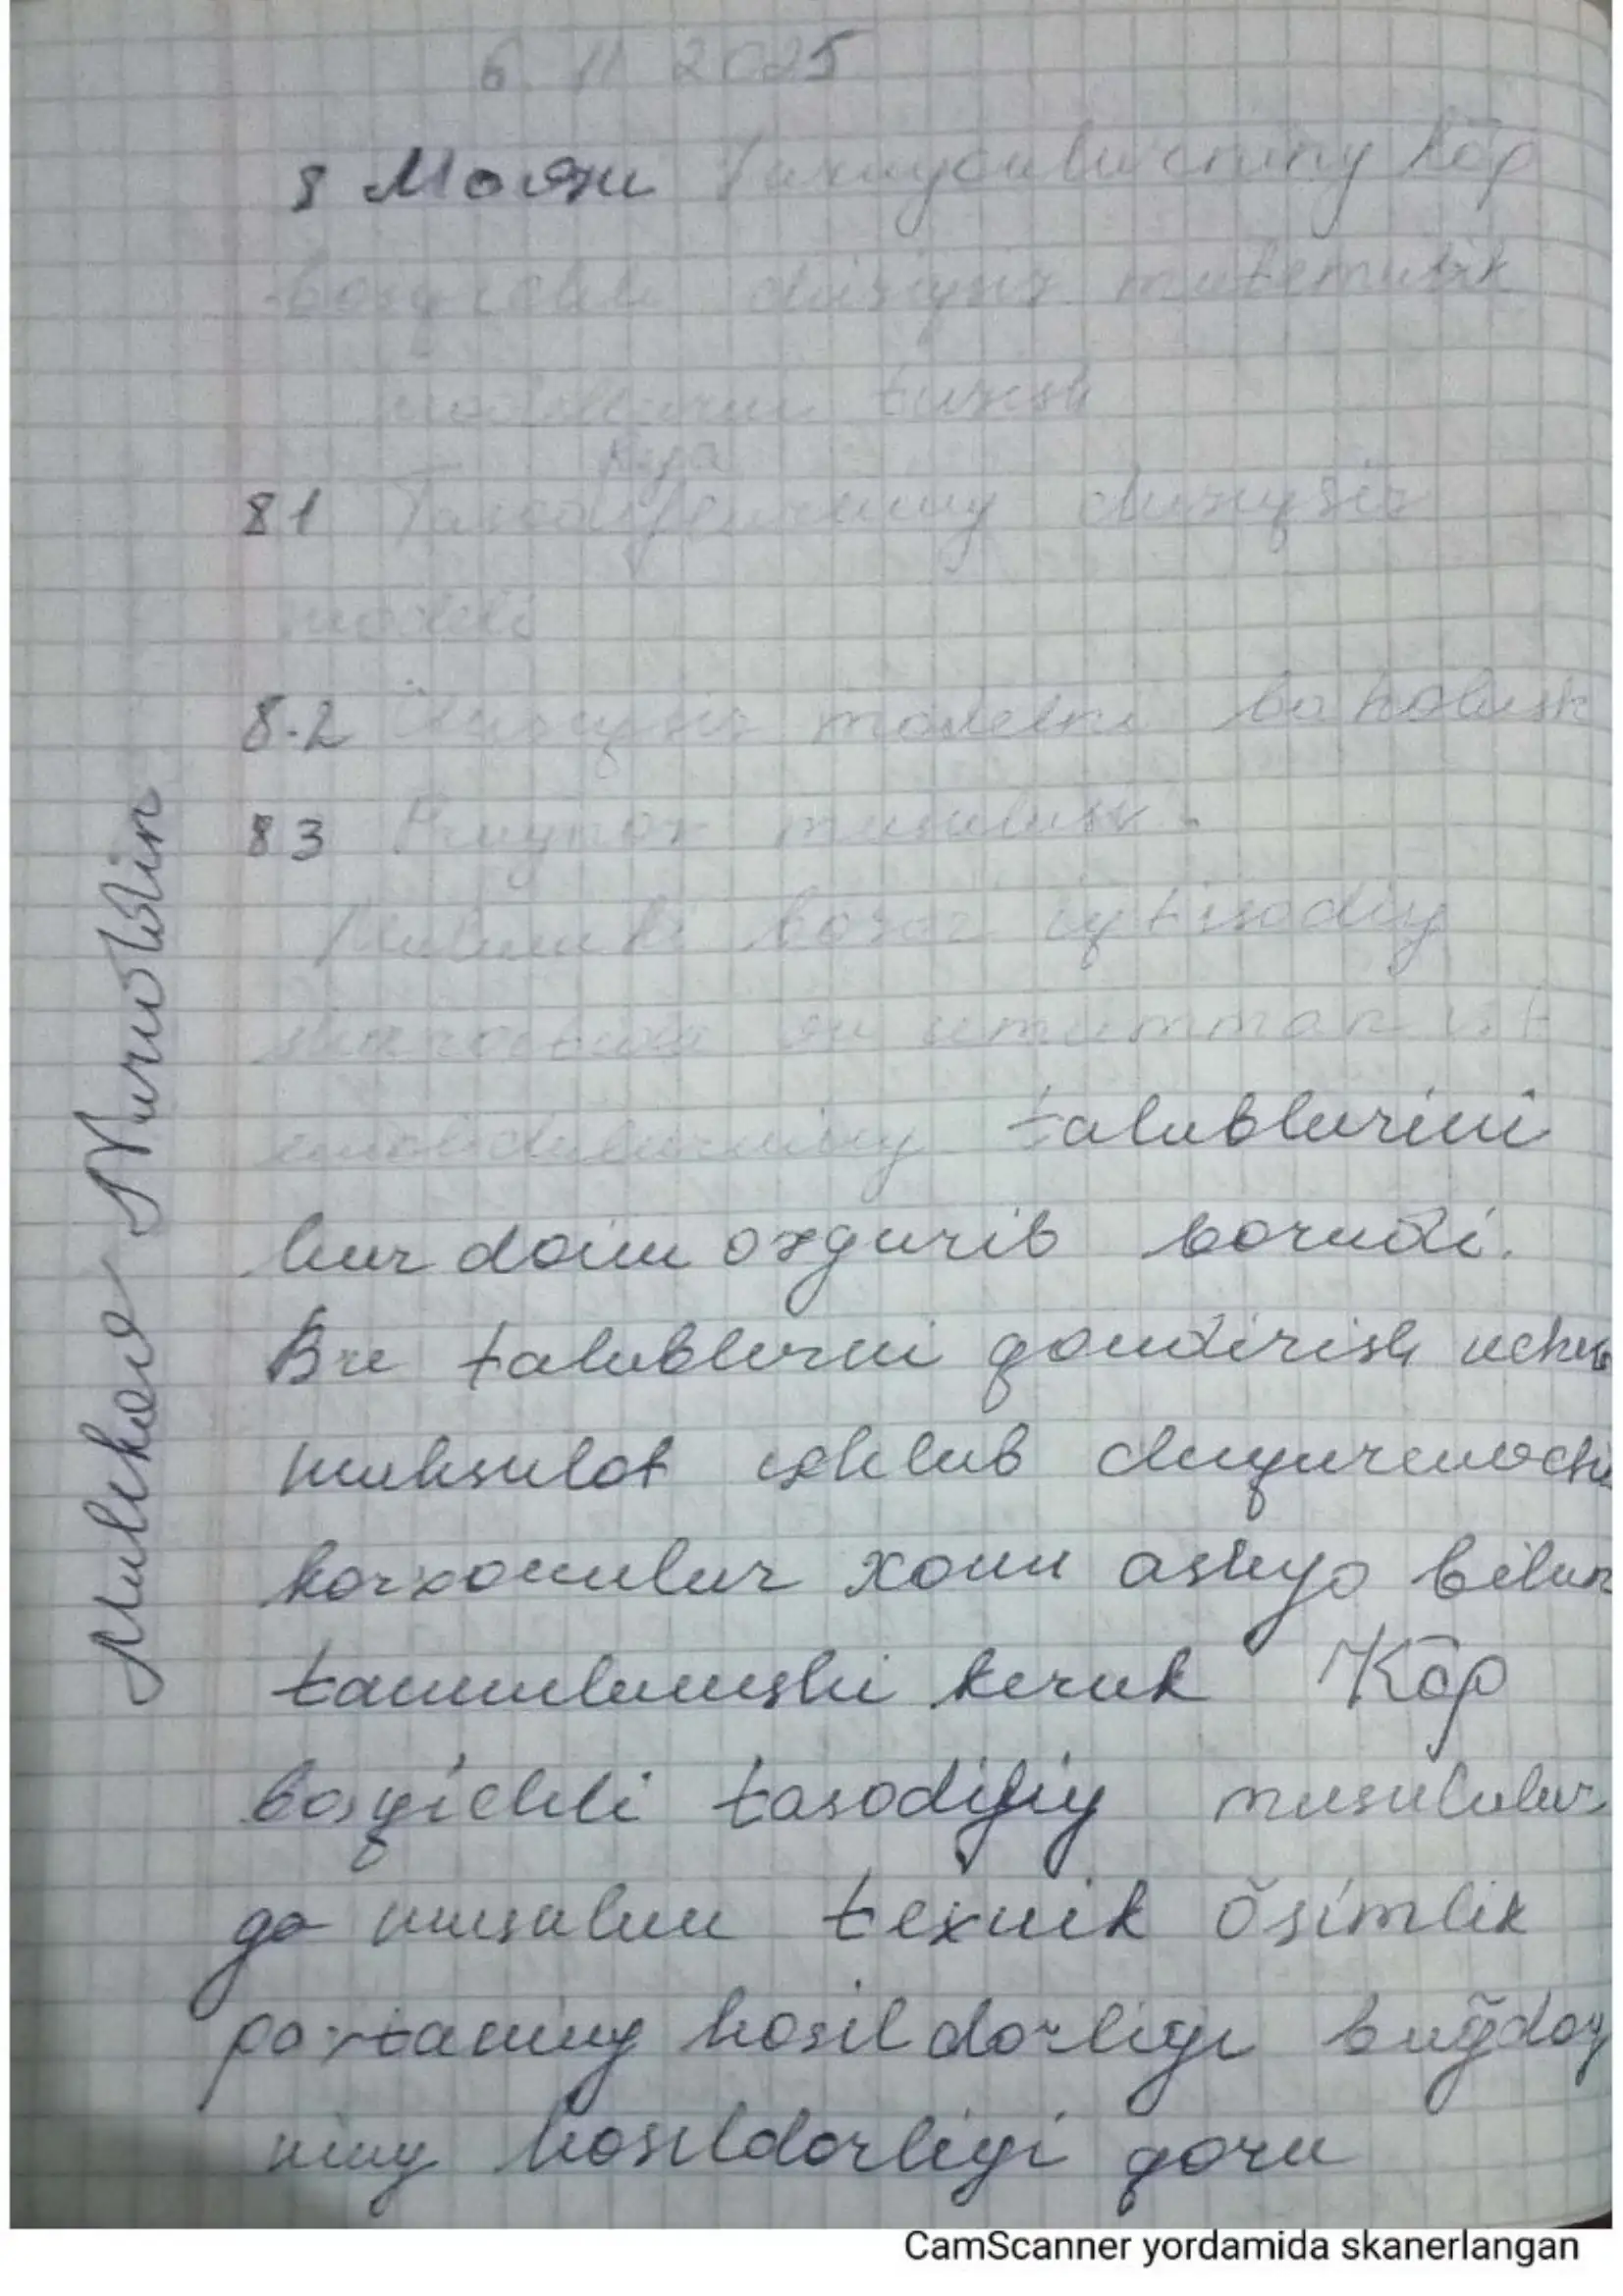 6 11 2025
8 Mavzu Taxnaychilarning Kōp
bosqichli chiziqsiz matematik
modellarini tuzish
8 1 chiziqsiz
modeli
8.2 Chiziqsiz modelni baholash
8 3 masalasi.
bozor iqtisodiy
sharoitida umumman
talablarini
har doim ozgarib boradi.
Bu talablarni qondirish uchun
mahsulot ishlab chiqaruvchi
korxonalar xom ashyo bilan
taminlanishi kerak Kōp
bosqichli tasodifiy masalalar
ga masalan texnik ōsimlik
paxtaning hosildorligi buğdoy
ning hosildorligi qora
Malikov Nuriddin
CamScanner yordamida skanerlangan